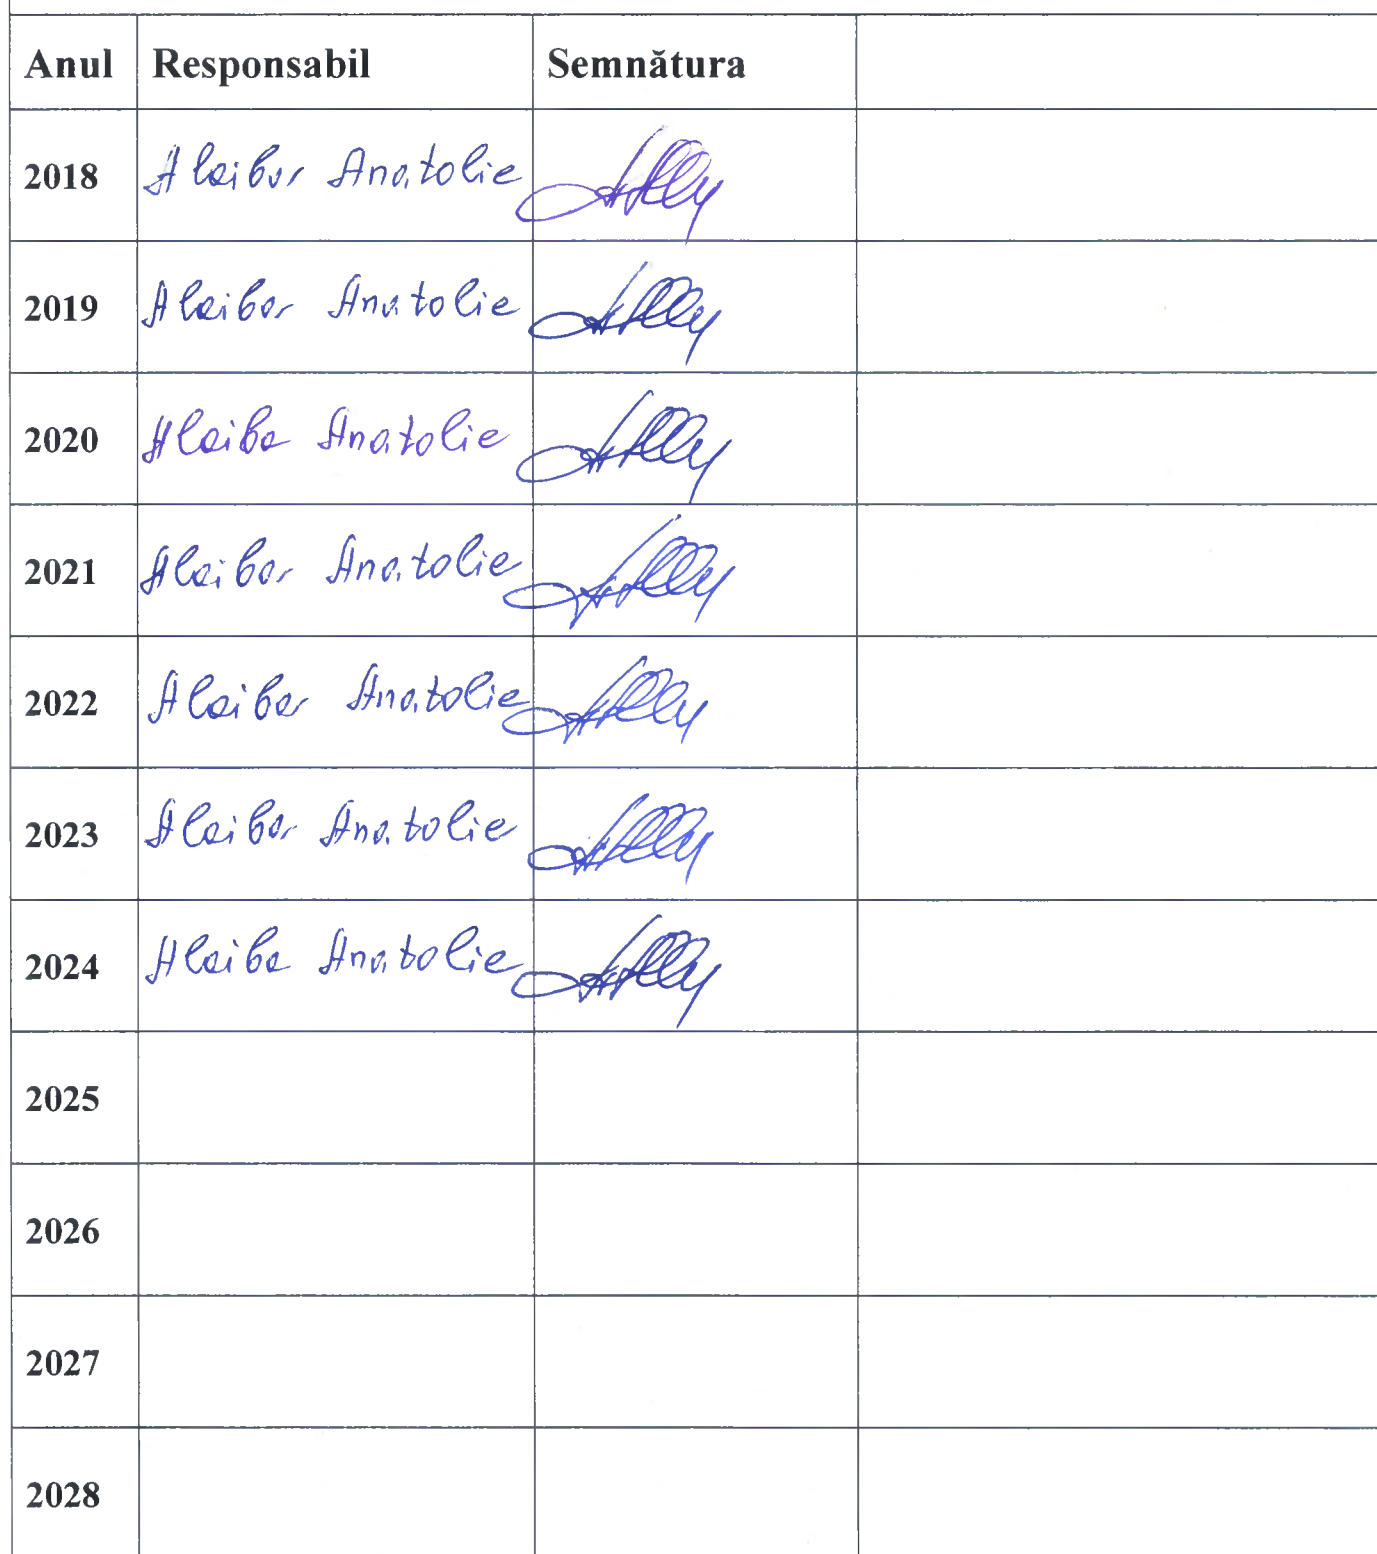 Anul Responsabil Semnătura
2018 Alaiba Anatolie
2019 Alaiba Anatolie
2020 Alaiba Anatolie
2021 Alaiba Anatolie
2022 Alaiba Anatolie
2023 Alaiba Anatolie
2024 Alaiba Anatolie
2025
2026
2027
2028